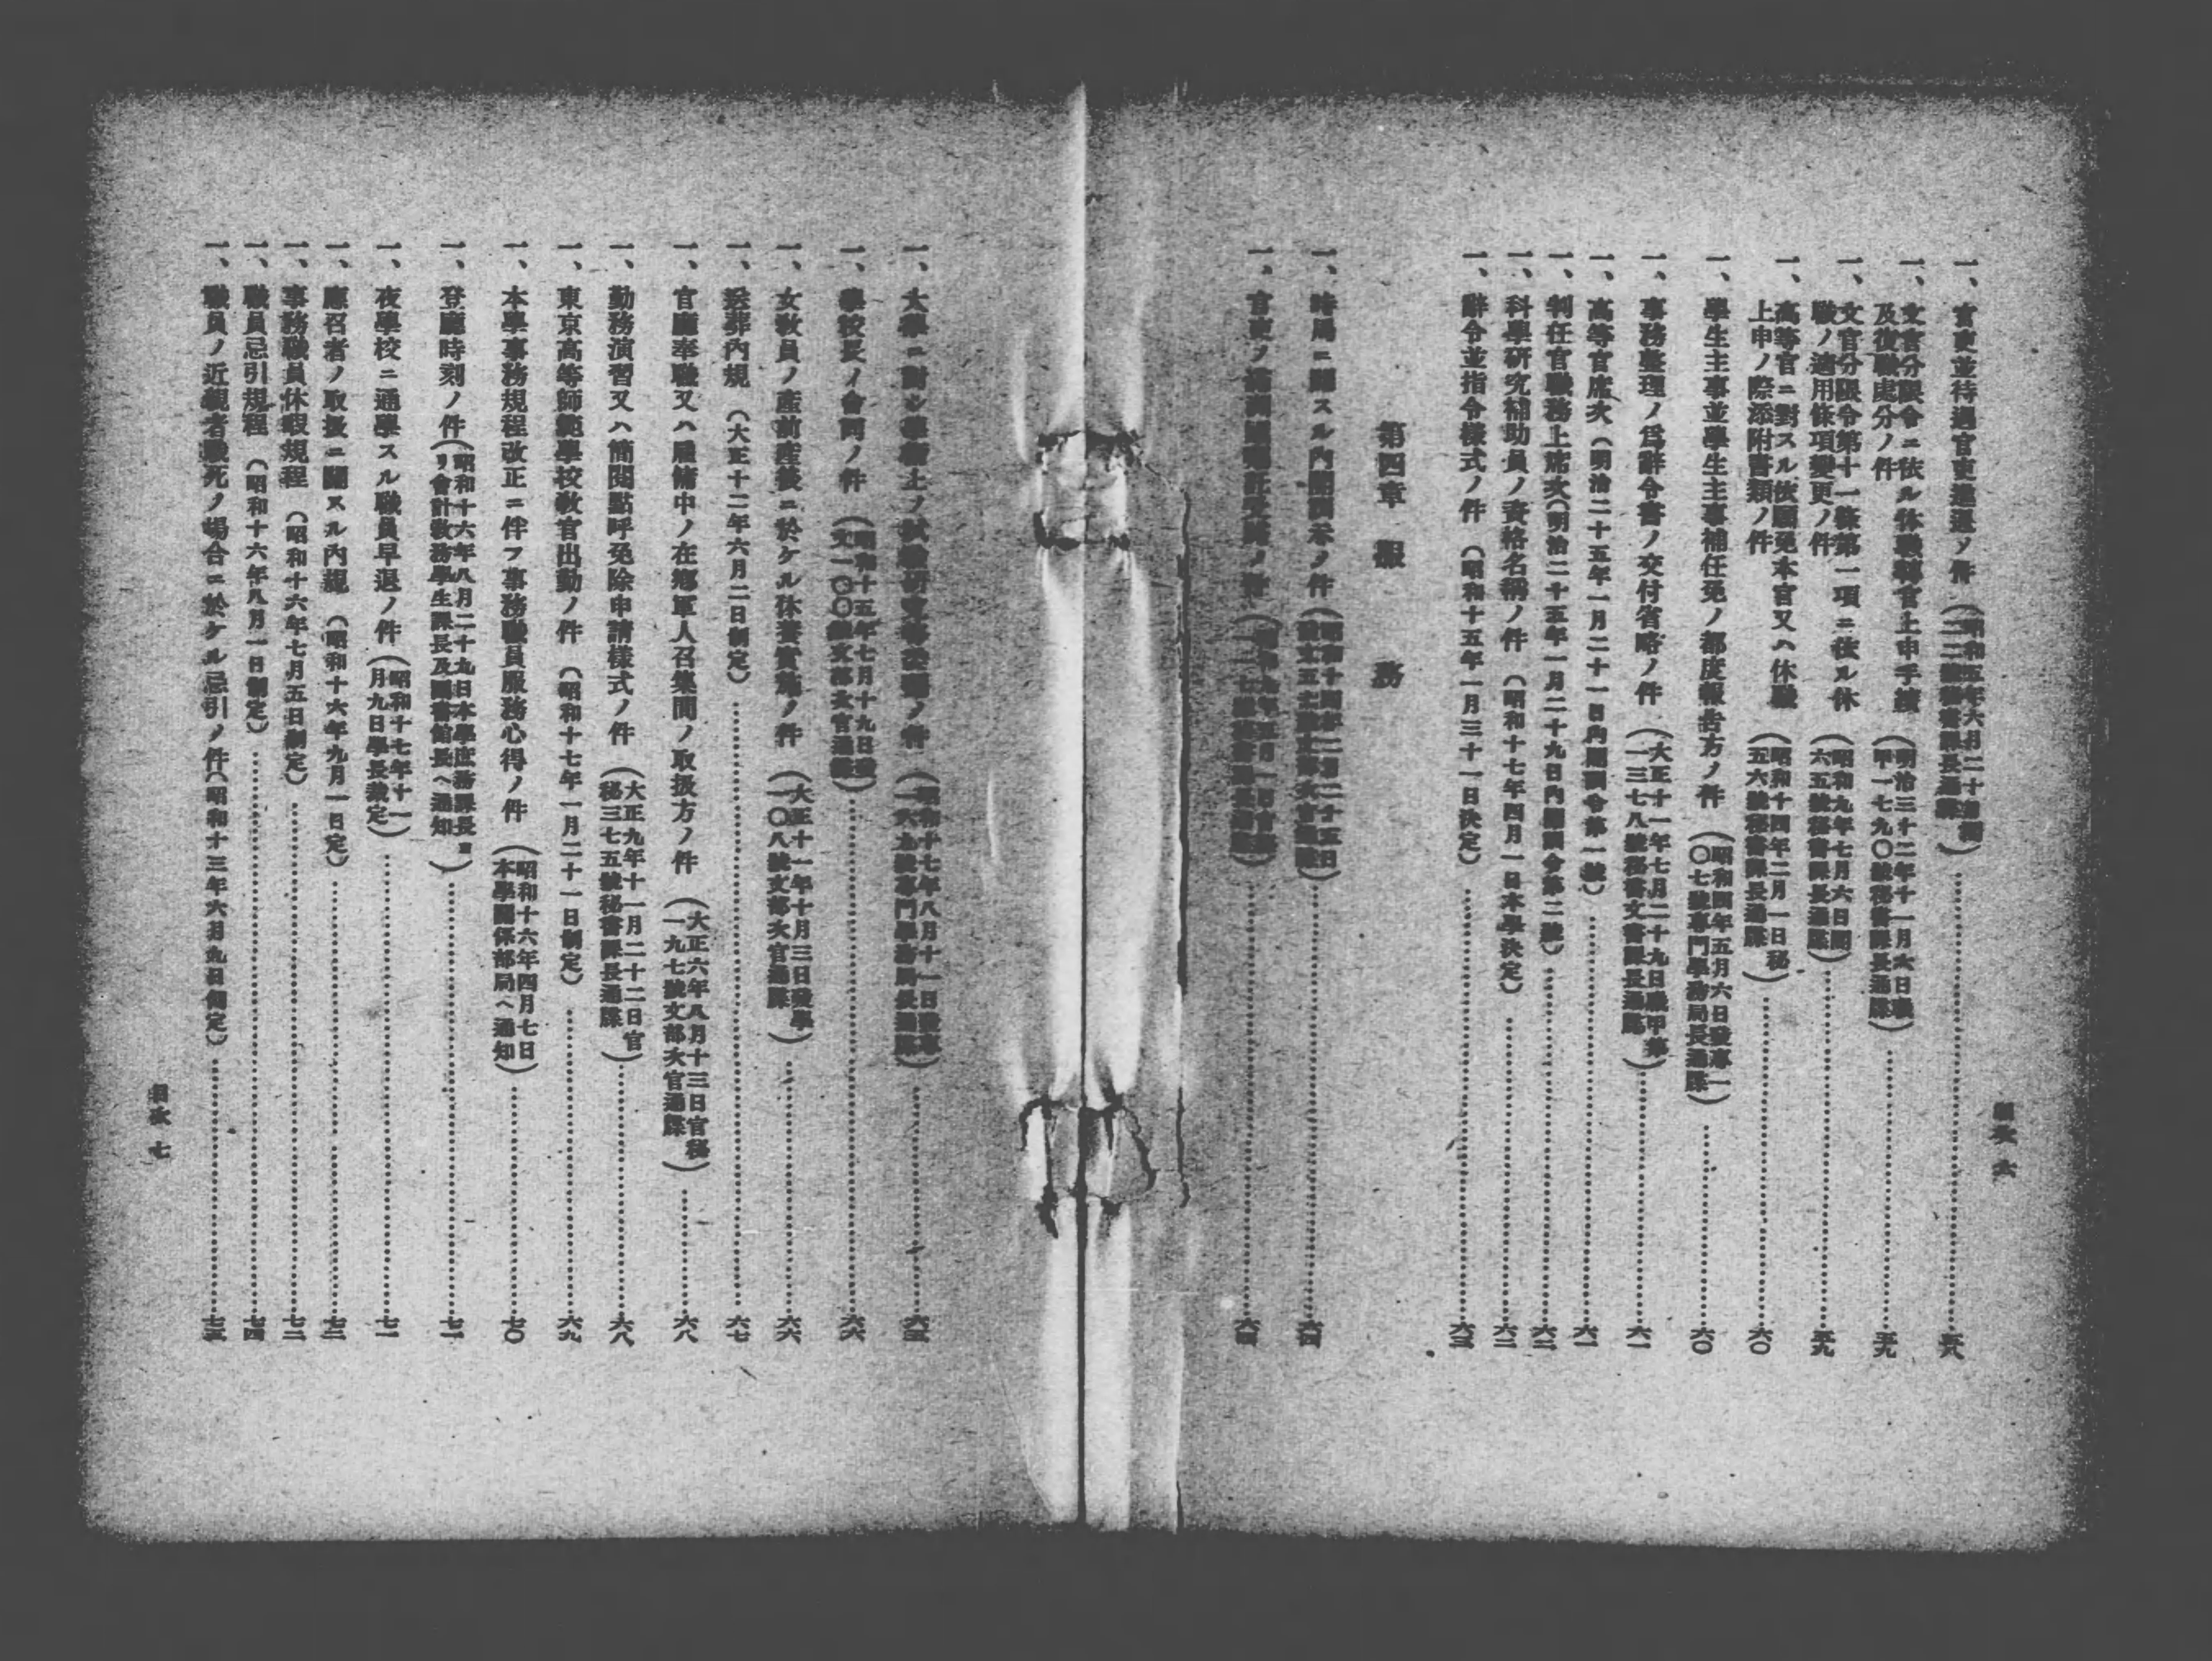 目次 六
一、官吏並待遇官吏進退ノ件(昭和五年六月二十
二號秘書課長通牒)……五八
一、文官分限令ニ依ル休職轉官上申手續
及復職處分ノ件(明治三十二年十一月六日職
甲一七九〇號秘書課長通牒)……五九
一、文官分限令第十一條第一項ニ依ル休
職ノ適用條項變更ノ件(昭和九年七月六日閣
六五號秘書課長通牒)……五九
一、高等官ニ對スル依願免本官又ハ休職
上申ノ際添附書類ノ件(昭和十四年二月一日秘
五六號秘書課長通牒)……六〇
一、學生主事並學生主事補任免ノ都度報告方ノ件(昭和四年五月六日發專一
〇七號專門學務局長通牒)……六〇
一、事務整理ノ爲辭令書ノ交付省略ノ件(大正十一年七月二十九日職甲第
一三七八號秘書文書課長通牒)……六一
一、高等官席次(明治二十五年一月二十一日內閣訓令第一號)……六一
一、判任官職務上席次(明治二十五年一月二十九日內閣訓令第二號)……六二
一、科學硏究補助員ノ資格名稱ノ件(昭和十七年四月一日本學決定)……六二
一、辭令並指令樣式ノ件(昭和十五年一月三十一日決定)……六三
第四章 服務
一、時局ニ關スル內閣訓示ノ件(昭和十四年二月二十五日
文部次官通牒)……六四
一、官吏ノ ノ件(昭和九年五月一日官秘
秘書課長通牒)……六四
一、大學ニ對シ學術上ノ試驗硏究等 ノ件(昭和十七年八月十一日發專
一六九號專門學務局長通牒)……六五
一、學校長ノ會同ノ件(昭和十五年七月十九日發
文一〇〇號文部次官通牒)……六六
一、女敎員ノ產前產後ニ於ケル休養實施ノ件(大正十一年十月三日發學
一〇八號文部次官通牒)……六六
一、送葬內規(大正十二年六月二日制定)……六七
一、官廳奉職又ハ雇傭中ノ在鄕軍人召集間ノ取扱方ノ件(大正六年八月十三日官秘
一九七號文部次官通牒)……六八
一、勤務演習又ハ簡閱點呼免除申請樣式ノ件(大正九年十一月二十二日官
秘三七五號秘書課長通牒)……六八
一、東京高等師範學校敎官出勤ノ件(昭和十七年一月二十一日制定)……六九
一、本學事務規程改正ニ伴フ事務職員服務心得ノ件(昭和十六年四月七日
本學關係部局ヘ通知)……七〇
一、登廳時刻ノ件(昭和十六年八月二十九日本學庶務課長ヨ
リ會計敎務學生課長及圖書館長ヘ通知)……七一
一、夜學校ニ通學スル職員早退ノ件(昭和十七年十一
月九日學長裁定)……七一
一、應召者ノ取扱ニ關スル內規(昭和十六年九月一日定)……七二
一、事務職員休暇規程(昭和十六年七月五日制定)……七二
一、職員忌引規程(昭和十六年八月一日制定)……七四
一、職員ノ近親者戰死ノ場合ニ於ケル忌引ノ件(昭和十三年六月九日伺定)……七五
目次 七